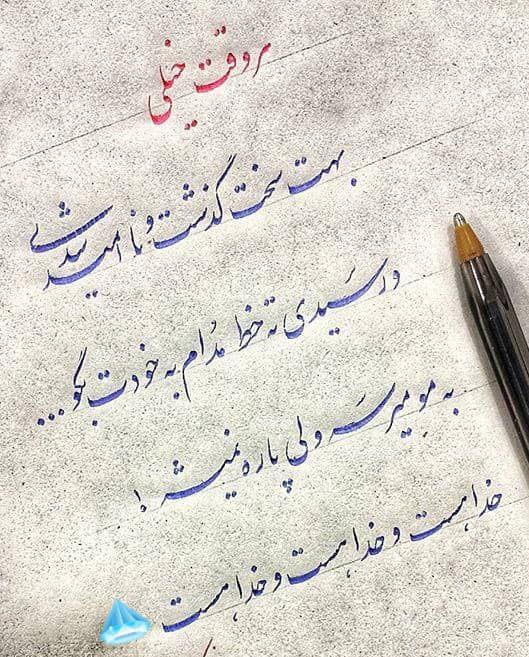 هر وقت خیلی
بهت سخت گذشت و نا امید شدی
و رسیدی ته خط مدام به خودت بگو...
به مو میرسه ولی پاره نمیشه!
خدا هست و خدا هست و خدا هست